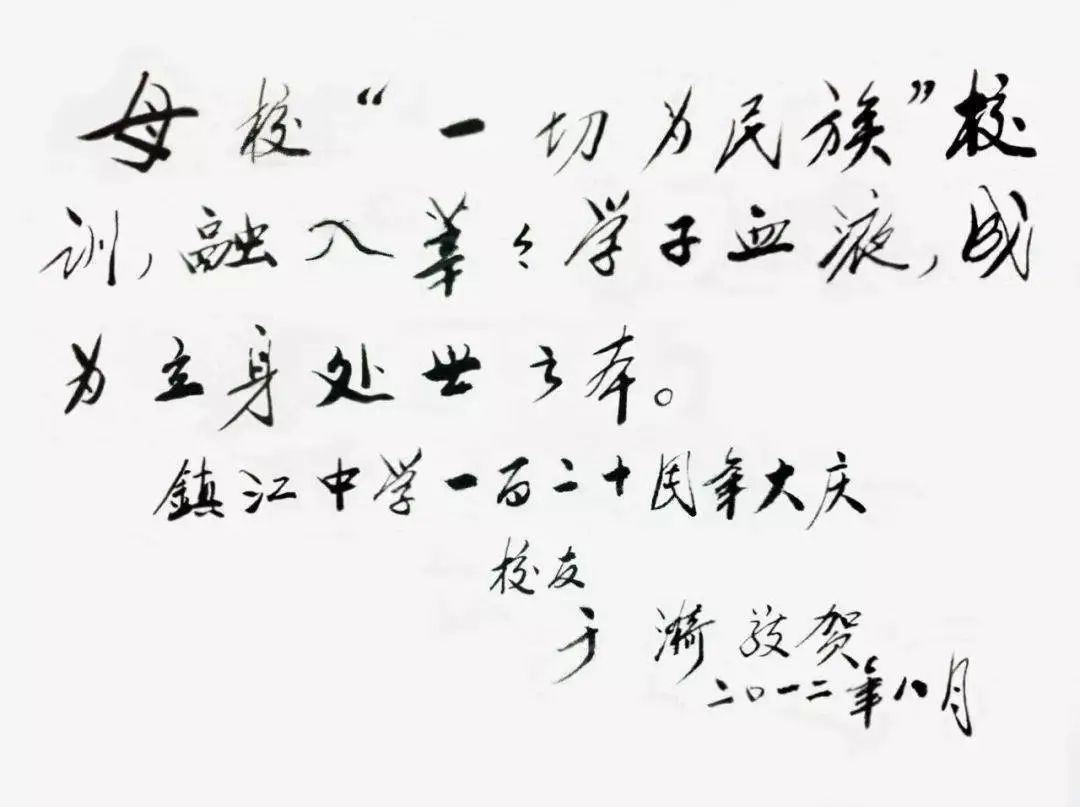 母校“一切为民族”校
训,融入莘々学子血液,成
为立身处世之本。
鎮江中学一百二十周年大庆
校友
于漪敬贺
二〇一二年八月